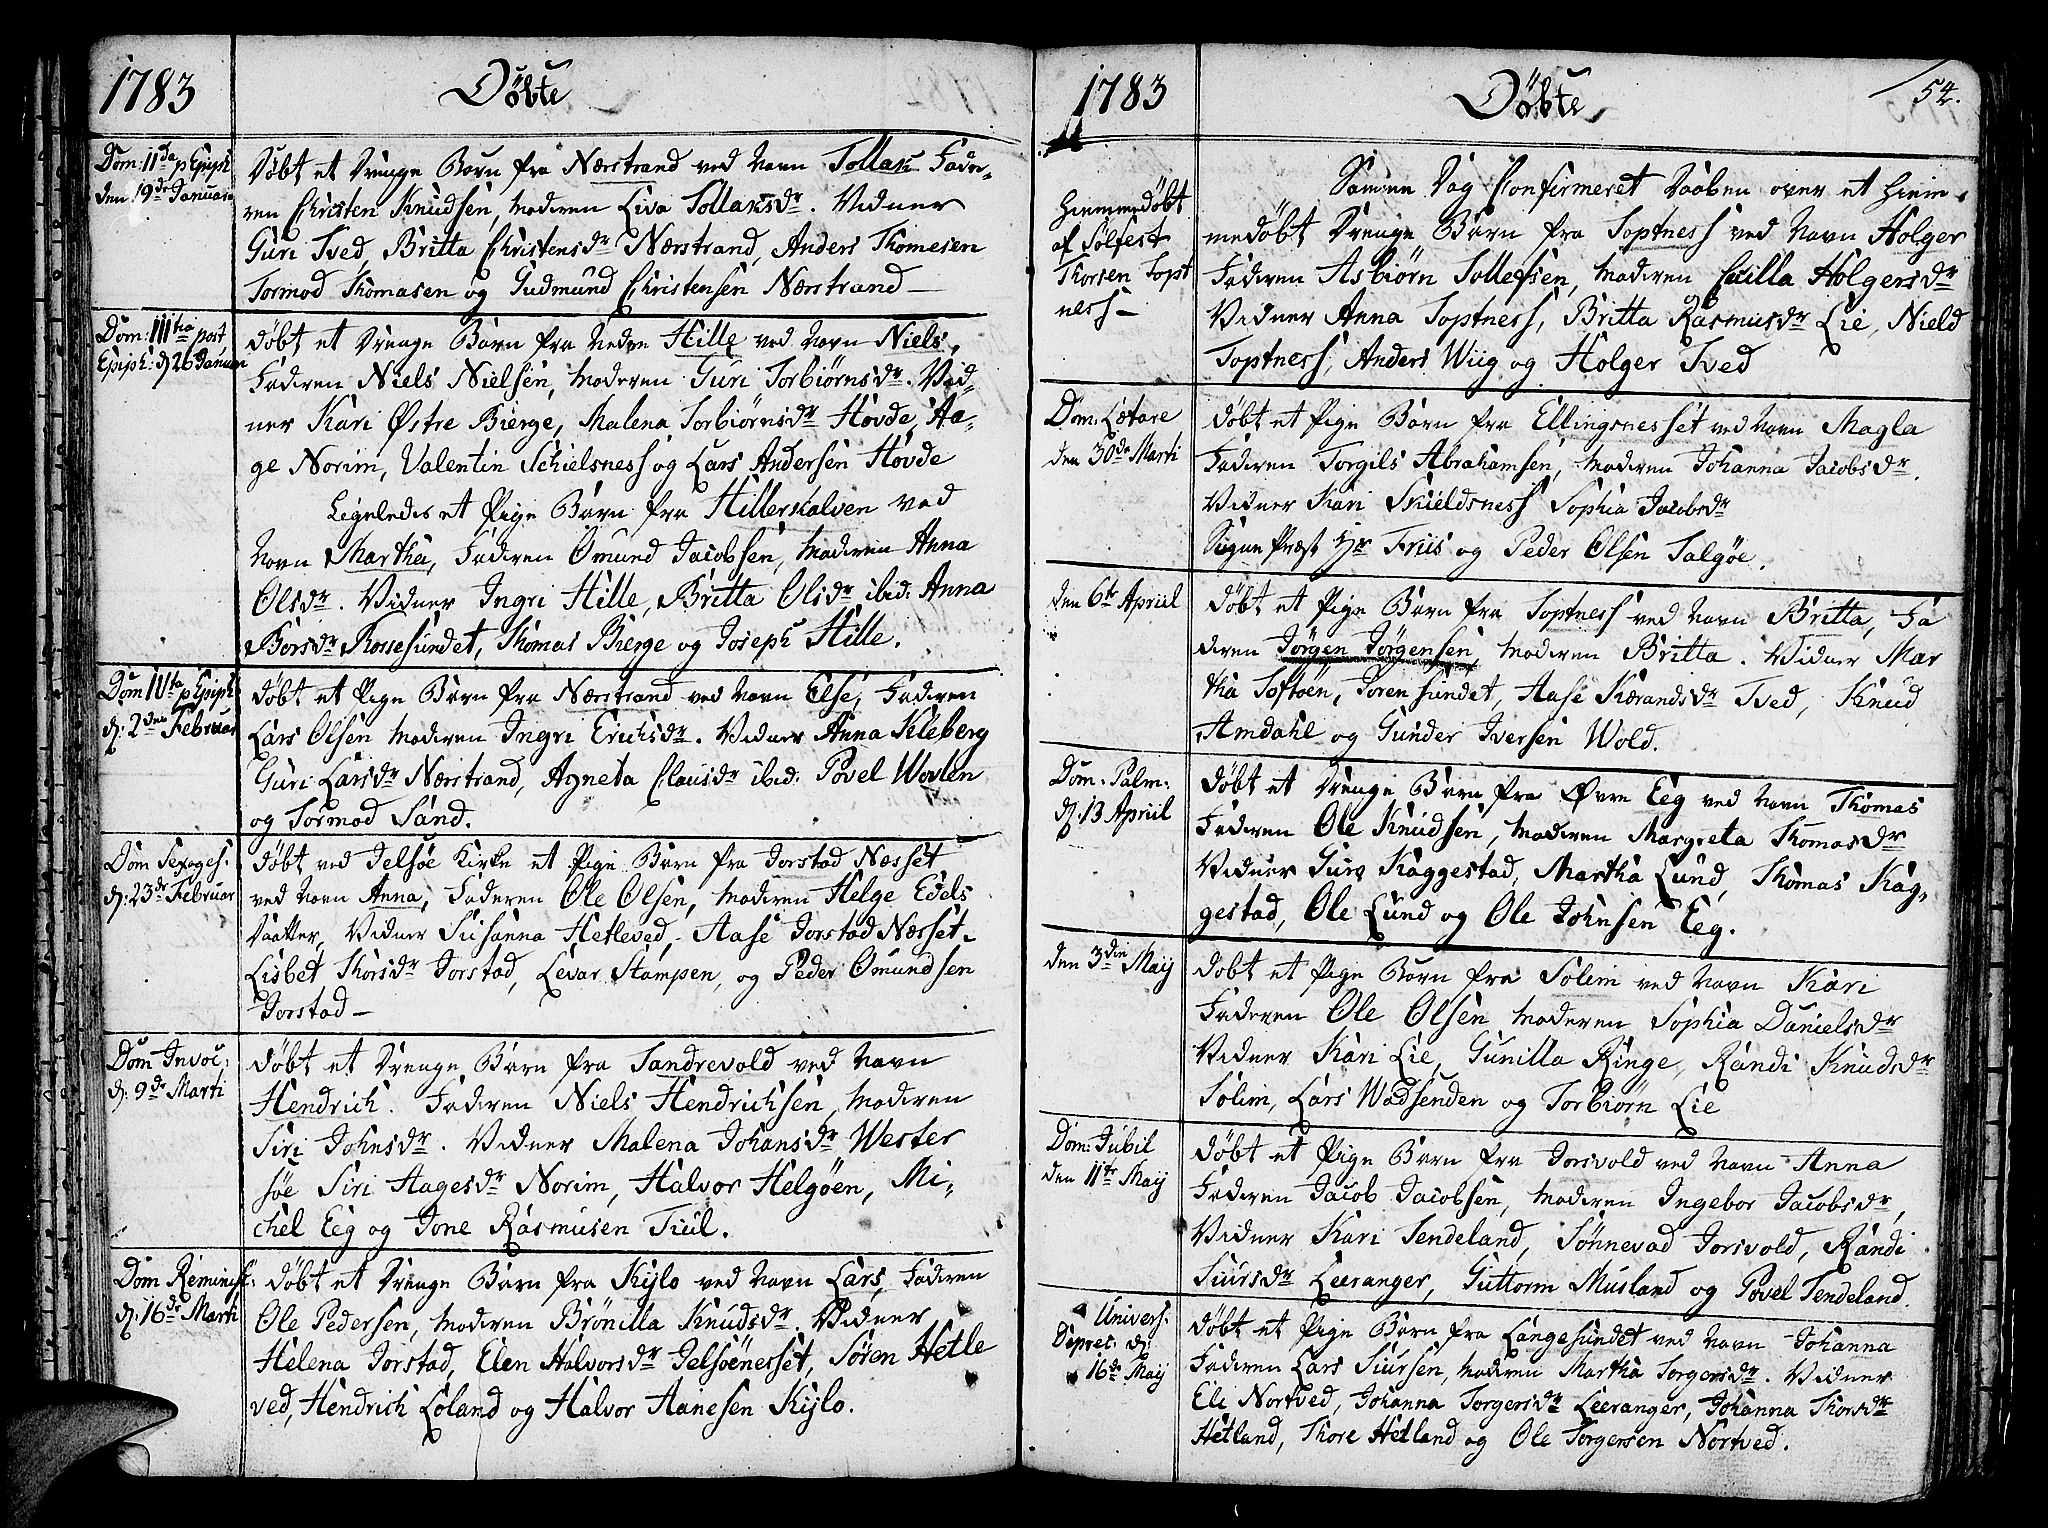 1783
Døbte
Dom: IIda p Epiph
den 19de Januarii
Døbt et Drenge Barn fra Nærstrand ved Navn Tollak Fade-
ren Christen Knudsen, Moderen Liva Tollaksdr. Vidner
Guri Tved, Britta Christensdr Nærstrand, Anders Thomesen
Tormod Thomasen og Gudmund Christensen Nærstrand —
Dom: IIItia post
Epiph: d 26 Januari
døbt et Drenge Barn fra Nedre Hille ved Navn Niels,
Faderen Niels Nielsen, Moderen Guri Torbiørnsdr. Vid-
ner Kari Østre Bierge, Malena Torbiørnsdr Hovde, Aa-
ge Norim, Valentin Schielsness og Lars Andersen Hovde
Ligeledes et Pige Barn fra Hillerskalven ved
Navn Martha, Faderen Omund Jacobsen, Moderen Anna
Olsdr. Vidner Ingri Hille, Britta Olsdr ibid: Anna
Borsdr Rossesundet, Thomas Bierge og Joseph Hille.
Dom IVta p Epiph
d: 2den Februar
døbt et Pige Barn fra Nærstrand ved Navn Else, Faderen
Lars Olsen Moderen Ingri Erichsdr. Vidner Anna Kleberg
Guri Larsdr Nærstrand, Agneta Clausdr ibid: Povel Wovlen
og Tormod Sand.
Dom Sexages:
d: 23de Februar
døbt ved Jelsøe Kirke et Pige Barn fra Jorstad Næsset
ved Navn Anna, Faderen Ole Olsen, Moderen Helge Edels
Daatter, Vidner Susanna Hetleved, Aase Jorstad Næsset.
Lisbet Thorsdr Jorstad, Levar Stampen, og Peder Omundsen
Jorstad —
Dom Invoc:
d: 9de Marti
døbt et Drenge Barn fra Sandrevold ved Navn
Hendrich. Faderen Niels Hendrichsen, Moderen
Siri Johnsdr. Vidner Malena Johansdr Wester
søe Siri Hagesdr Norim, Halvor Helgöen, Mi-
chel Eeg og Jone Rasmusen Tiul.
Dom Reminisc:
d: 16de Marti
døbt et Drenge Barn fra Kijlo ved Navn Lars, Faderen
Ole Pedersen, Moderen Brönilla Knudsdr. Vidner
Helena Jorstad, Elen Halvorsdr Jelsöenesset, Sören Hetle
ved, Hendrich Loland og Halvor Aanesen Kijlo.
1783
Døbte
54.
Hiemmedøbt
af Sølfest
Thorsen Topt
ness —
Samme Dag Confirmeret Daaben over et Hiem-
medøbt Drenge Barn fra Toptness ved Navn Holger
Faderen Asbiørn Tollefsen, Moderen Cicilla Holgersdr
Vidner Anna Toptness, Britta Rasmusdr Lie, Nield
Toptness, Anders Wiig og Holger Tved
Dom: Lætare
den 30de Marti
døbt et Pige Barn fra Ellingsnesset ved Navn Magla
Faderen Torgils Abrahamsen, Moderen Johanna Jacobsdr.
Vidner Kari Skieldsness Sophia Jacobsdr
Sogne Præst Hr Friis og Peder Olsen Talgøe.
den 6te Apriil
døbt et Pige Barn fra Toptness ved Navn Britta, Fa
deren Jørgen Jørgensen, Moderen Britta. Vidner Mar
tha Toftøen, Toren sundet, Aase Kærandsdr Tved, Knud
Amdahl og Gunder Iversen Wold.
Dom: Palm:
d: 13 Apriil
døbt et Drenge Barn fra Øvre Eeg ved Navn Thomas
Faderen Ole Knudsen, Moderen Margreta Thomasdr
Vidner Guro Kaggestad, Martha Lund, Thomas Kag-
gestad, Ole Lund og Ole Johnsen Eeg.
den 3die Maij
døbt et Pige Barn fra Solim ved Navn Kari
Faderen Ole Olsen Moderen Sophia Danielsdr
Vidner Kari Lie, Gunilla Ringe, Randi Knudsdr
Solim, Lars Wadsenden og Torbiørn Lie
Dom: Jubil
den 11te Maij
døbt et Pige Barn fra Jorsvold ved Navn Anna
Faderen Jacob Jacobsen, Moderen Ingebor Jacobsdr,
Vidner Kari Tendeland, Sönnevad Jorsvold, Randi
Siursdr Leeranger, Guttorm Musland og Povel Tendeland.
Univers:
Depret: d:
16de Maij
døbt et Pige Barn fra Langesundet ved Navn Johanna
Faderen Lars Siursen, Moderen Martha Torgersdr. Vidner
Eli Nortved, Johanna Torgersdr Leeranger, Johanna Thorsdr
Hetland, Thore Hetland og Ole Torgersen Nortved.